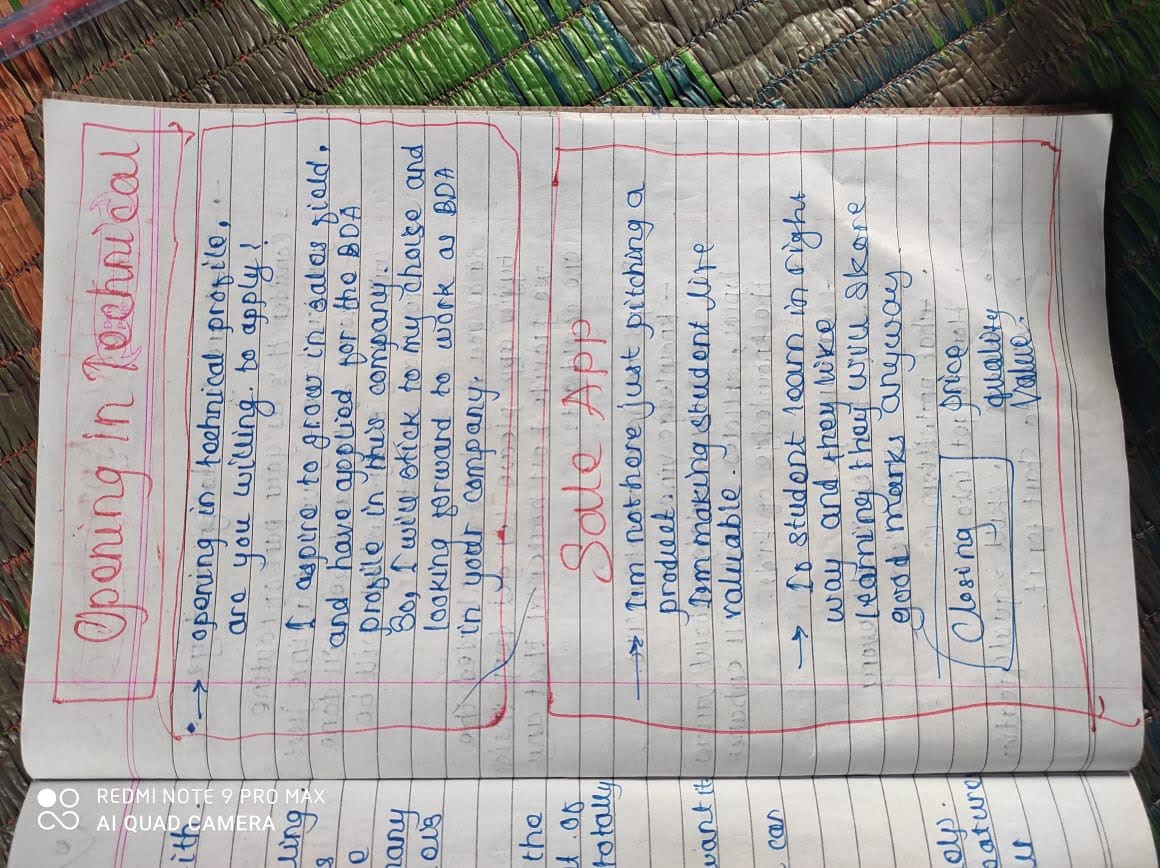 REDMI NOTE 9 PRO MAX
AI QUAD CAMERA
ith
ling
s
e
many
ois
the
totally
want it
can
eature
Opening in Technical
→ opening in technical profile,
are you willing. to apply!
I aspire to grow in sales field,
and have applied for the BDA
profile in this company.
So, I will stick to my choise and
looking forward to work as BDA
in your company.
Sale App
→ I'm not here just pitching a
product.
I'm making student life
valuable.
→ Is student learn in right
way and they like
learning they will skore
good marks anyway.
Closing
price
quality
Value.